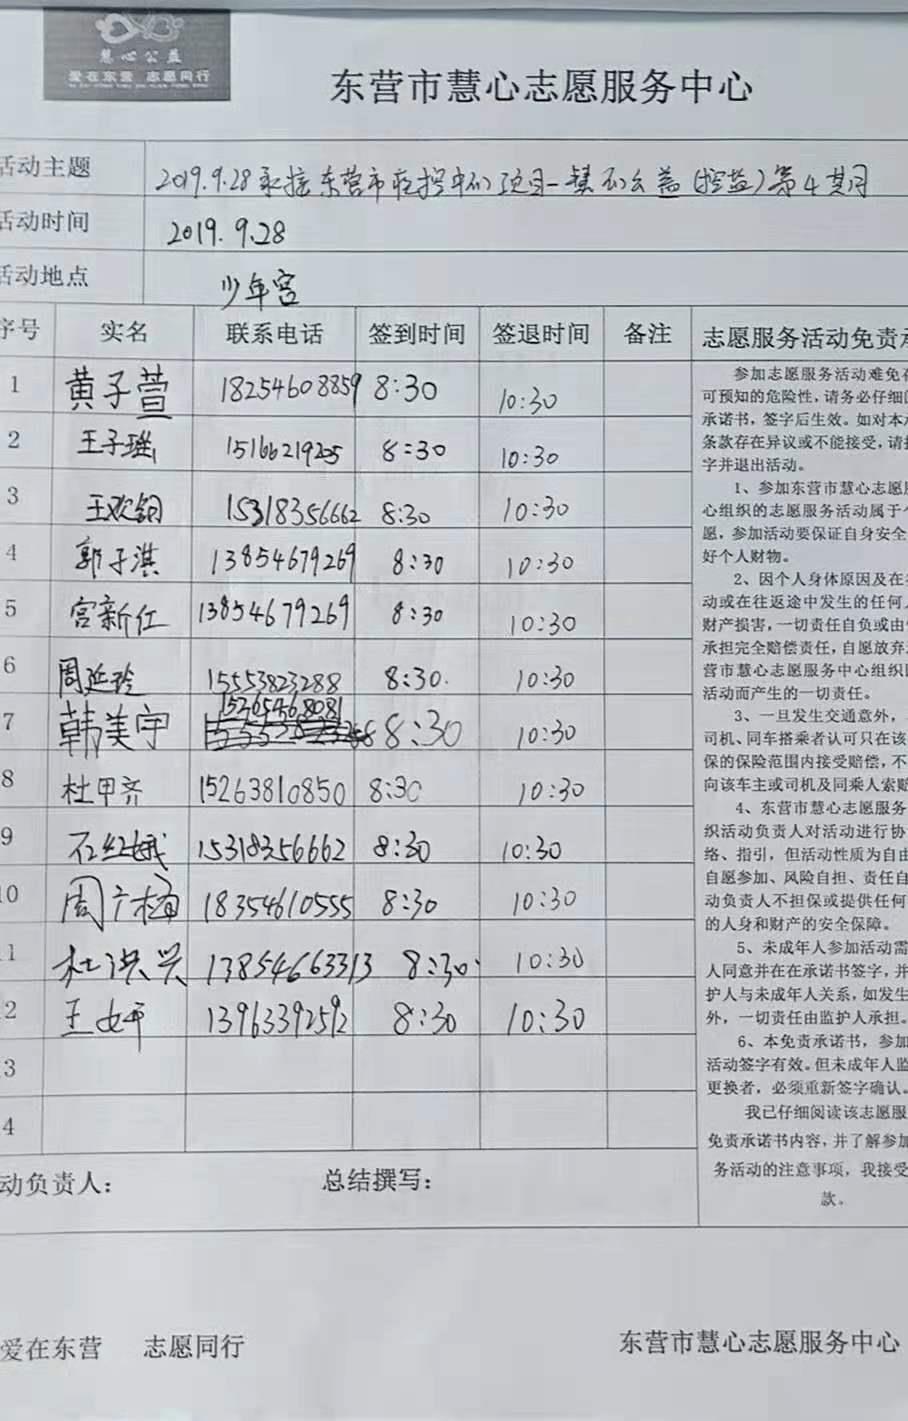 慧心公益
爱在东营 志愿同行
东营市慧心志愿服务中心
活动主题 2019.9.28 承接东营市 中心项目 公益 第4期
活动时间 2019.9.28
活动地点 少年宫
序号 实名 联系电话 签到时间 签退时间 备注 志愿服务活动免责承
1 黄子萱 18254608859 8:30 10:30
2 王子瑶 15166219205 8:30 10:30
3 王欢 15318356662 8:30 10:30
4 郭子淇 13854679269 8:30 10:30
5 宫新仁 13854679269 8:30 10:30
6 周延玲 15553823288 8:30 10:30
7 韩美宇 15265468081 8:30 10:30
8 杜甲齐 15263810850 8:30 10:30
9 石红娥 15318356662 8:30 10:30
10 周广梅 18354610555 8:30 10:30
1 杜洪兴 13854663313 8:30 10:30
2 王 13963392592 8:30 10:30
3
4
参加志愿服务活动难免存
可预知的危险性,请务必仔细阅
承诺书,签字后生效。如对本承
条款存在异议或不能接受,请拒
字并退出活动。
1、参加东营市慧心志愿服
心组织的志愿服务活动属于个
愿,参加活动要保证自身安全
好个人财物。
2、因个人身体原因及在
动或在往返途中发生的任何人
财产损害,一切责任自负或由
承担完全赔偿责任,自愿放弃
营市慧心志愿服务中心组织
活动而产生的一切责任。
3、一旦发生交通意外,
司机、同车搭乘者认可只在该
保的保险范围内接受赔偿,不
向该车主或司机及同乘人索赔
4、东营市慧心志愿服务
织活动负责人对活动进行协
络、指引,但活动性质为自由
自愿参加、风险自担、责任自
动负责人不担保或提供任何
的人身和财产的安全保障。
5、未成年人参加活动需
人同意并在在承诺书签字,并
护人与未成年人关系,如发生
外,一切责任由监护人承担。
6、本免责承诺书,参加
活动签字有效。但未成年人监
更换者,必须重新签字确认。
我已仔细阅读该志愿服
免责承诺书内容,并了解参加
务活动的注意事项,我接受
款。
动负责人: 总结撰写:
爱在东营 志愿同行 东营市慧心志愿服务中心